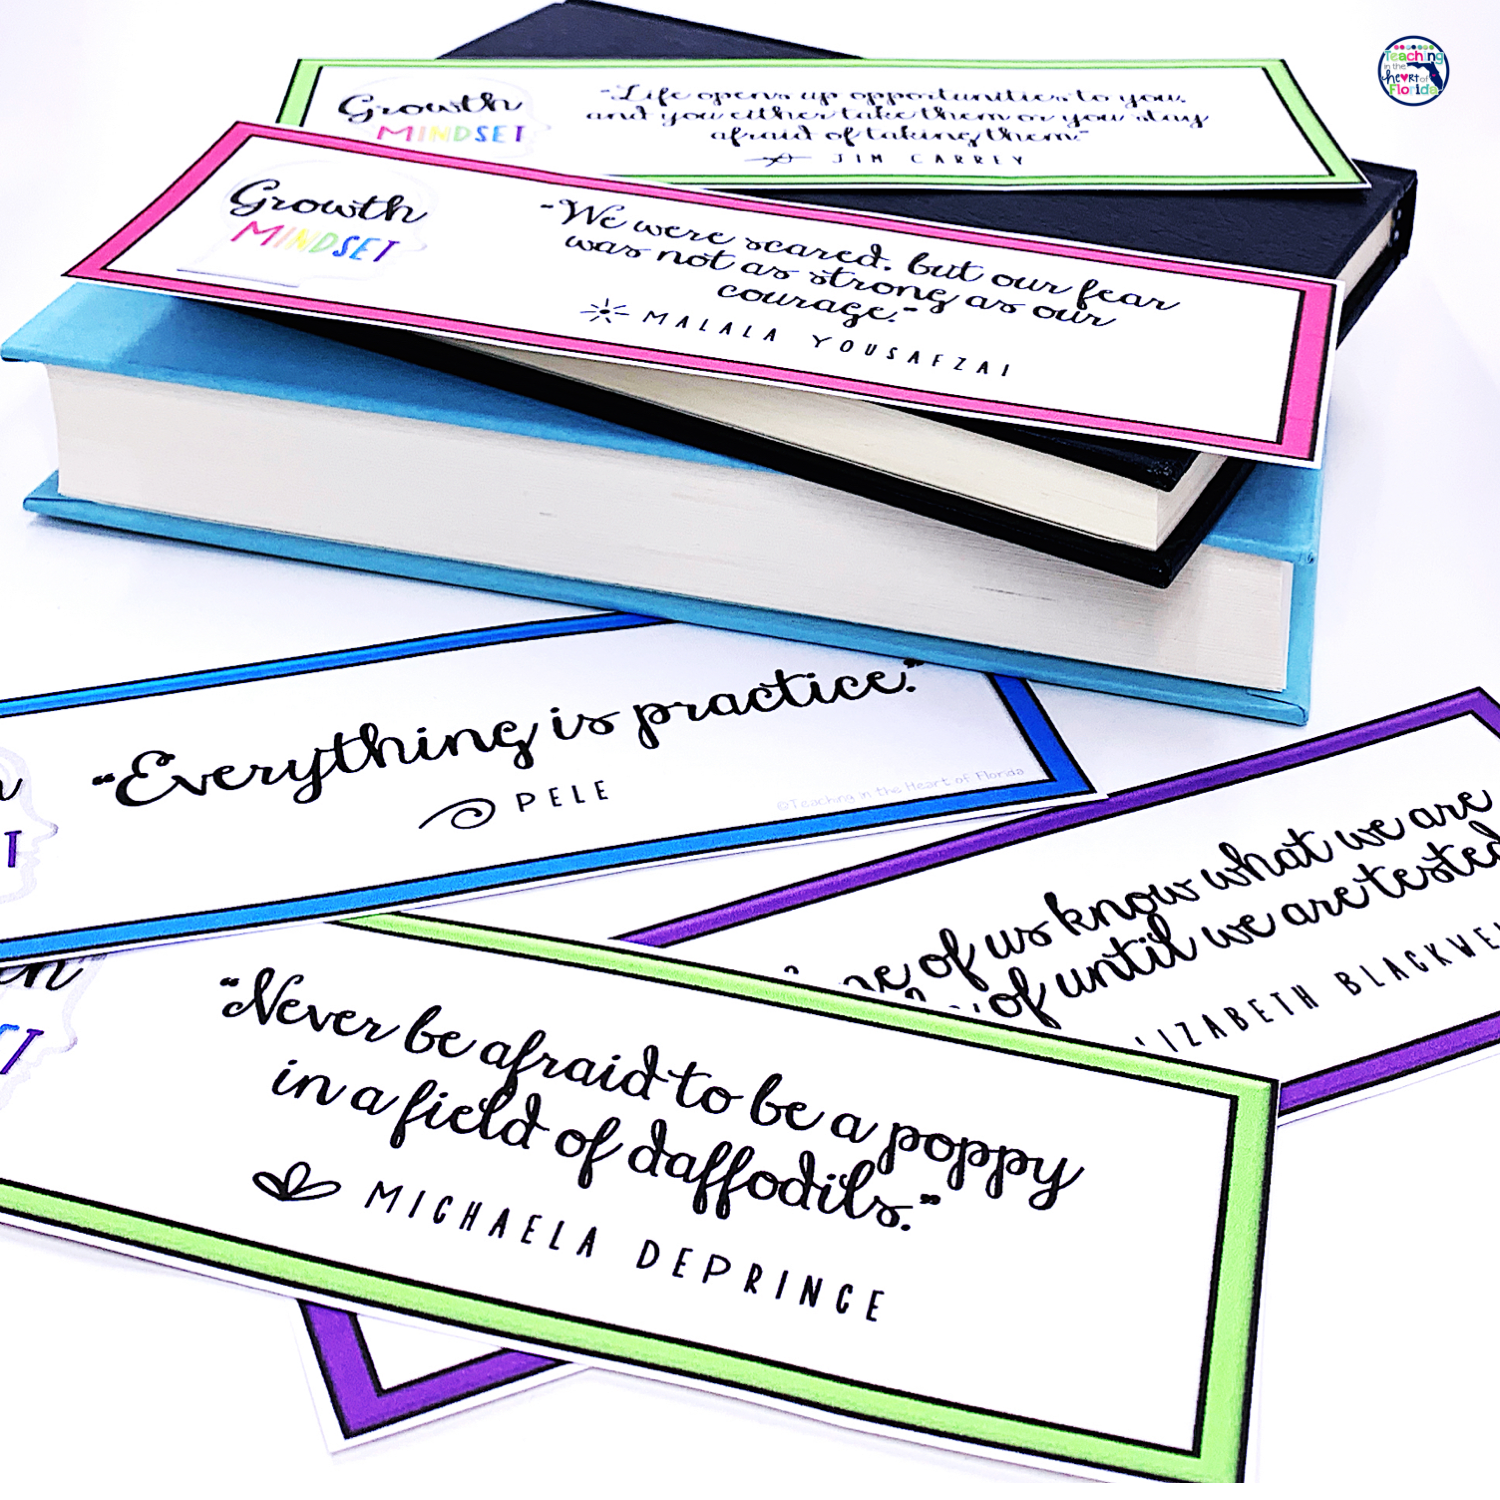 Teaching
in the
heart of
Florida
Growth
MINDSET
"Life opens up opportunities to you,
and you either take them or you stay
afraid of taking them."
JIM CARREY
Growth
MINDSET
"We were scared, but our fear
was not as strong as our
courage."
MALALA YOUSAFZAI
"Everything is practice."
PELE
©Teaching in the Heart of Florida
T
of us know what we are
of until we are tested
BLACKWE
"Never be afraid to be a poppy
in a field of daffodils."
MICHAELA DEPRINCE